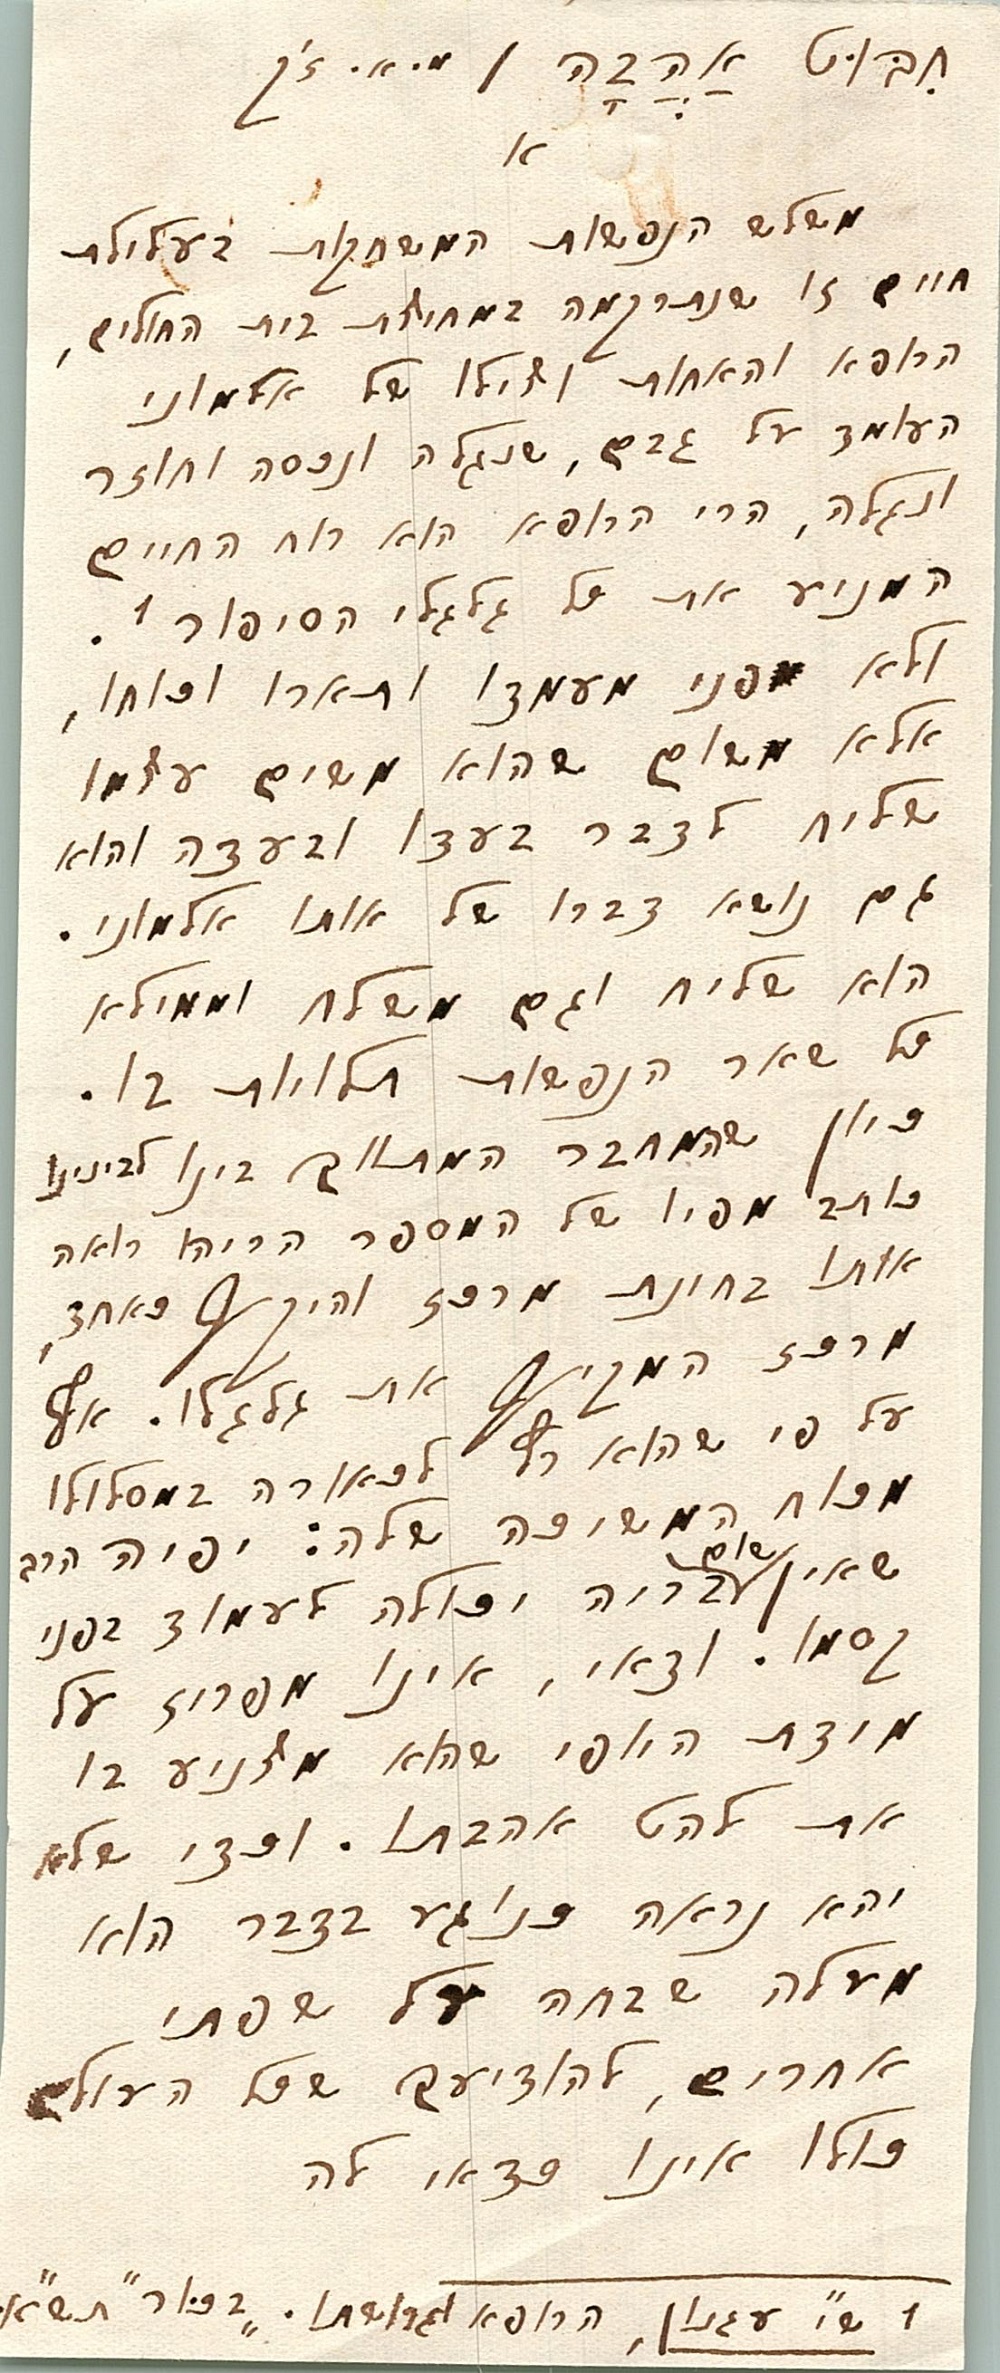 חִבּוּט אַהֲבָה / מ.א. ז'ק
א
משלש הנפשות המשחקות בעלילת
חיים זו שנתרקמה במחיצת בית החולים,
הרופא והאחות וצילו של אלמוני
העומד על גבם, שנגלה ונכסה וחוזר
ונגלה, הרי הרופא הוא רוח החיים
המניע את כל גלגלי הסיפור 1.
ולא מפני מעמדו ותארו וכוחו,
אלא משום שהוא משים עצמו
שליח לדבר בעדו ובעדה והוא
גם נושא דברו של אותו אלמוני.
הוא שליח וגם משלח וממילא
כל שאר הנפשות תלויות בו.
כיון שהמחבר המתווך בינו לבינינו
כותב מפיו של המספר הריהו רואה
אותו בחינת מרכז והיקף כאחד,
מרכז המקיף את גלגלו. אף
על פי שהוא רץ לכאורה במסלולו
מכוח המשיכה שלה: יפיה הרב
שאין שום בריה יכולה לעמוד בפני
קסמו. ודאי, אינו מפריז על
מידת היופי שהוא מצניע בו
את להט אהבתו. וכדי שלא
יהא נראה כנוגע בדבר הוא
מעלה שבחה על שפתי
אחרים, להודיעך שכל העולם
כולו אינו כדאי לה
1 ש"י עגנון, הרופא וגרושתו. "בכור" תש"א.